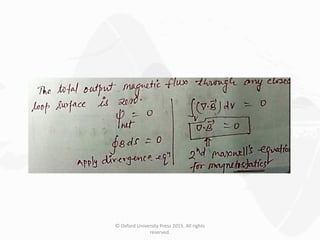 The total output magnetic flux through any closed
loop surface is zero.
ψ net = 0
∮B ds = 0
Apply divergence eqⁿ
∫(∇·B⃗) dv = 0
∇·B⃗ = 0
2nd maxwell's equation
for magnetostatics
© Oxford University Press 2015. All rights
reserved.